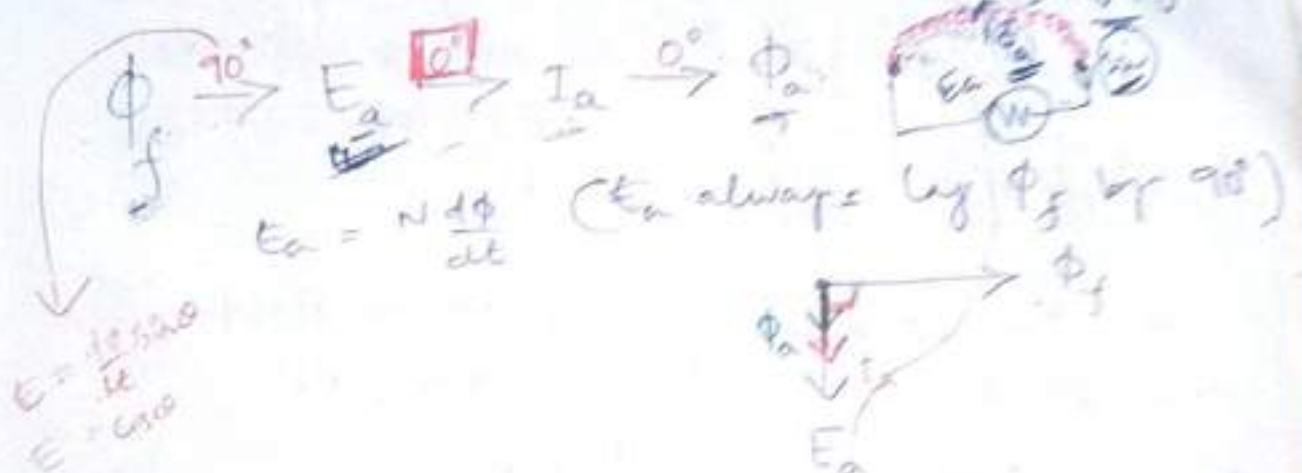 ϕf 90° → Ea 0° → Ia 0° → ϕa
Ea
W
Ea = N dϕ/dt (Ea always lag ϕf by 90°)
ϕf
ϕa
Ea
E = dϕ sinθ/dt
E = cosθ